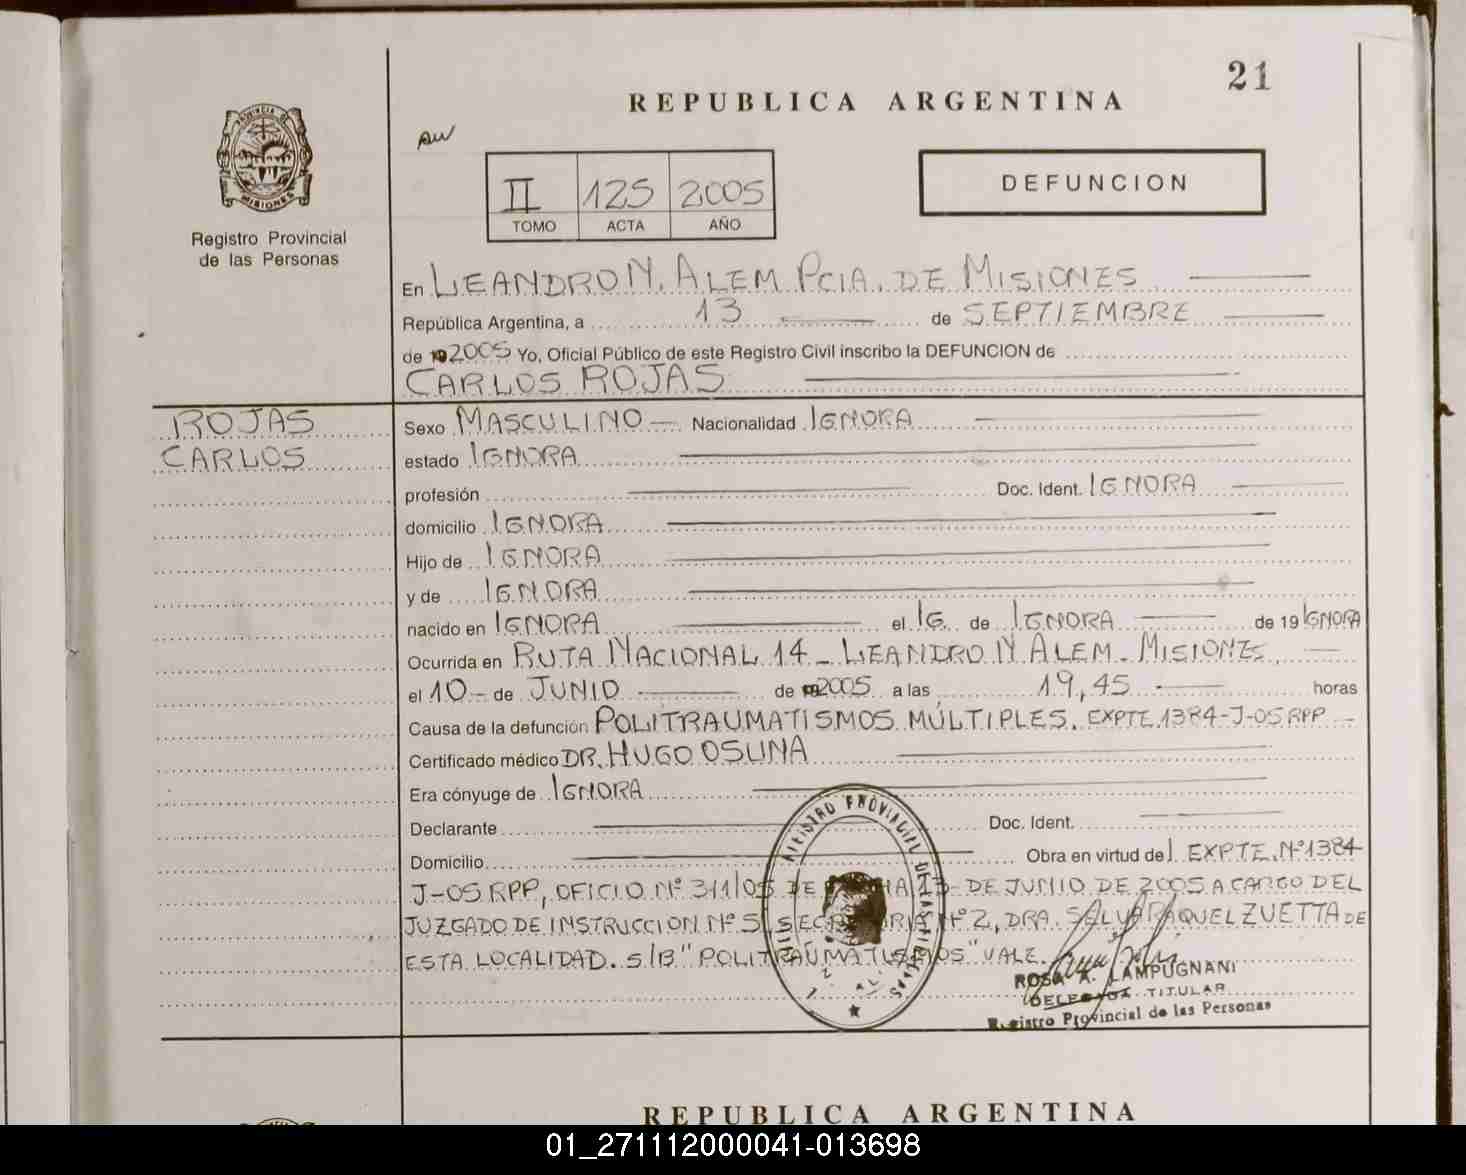 21
REPUBLICA ARGENTINA
PROVINCIA DE
MISIONES
Registro Provincial
de las Personas
II 125 2005
TOMO ACTA AÑO
DEFUNCION
En LEANDRO N. ALEM PCIA. DE MISIONES
República Argentina, a 13 de SEPTIEMBRE
de 2005 Yo, Oficial Público de este Registro Civil inscribo la DEFUNCION de
CARLOS ROJAS
ROJAS
CARLOS
Sexo MASCULINO Nacionalidad IGNORA
estado IGNORA
profesión Doc. Ident. IGNORA
domicilio IGNORA
Hijo de IGNORA
y de IGNORA
nacido en IGNORA el IG de IGNORA de 19 IGNORA
Ocurrida en RUTA NACIONAL 14 - LEANDRO N ALEM - MISIONES
el 10 - de JUNIO de 2005 a las 19,45 horas
Causa de la defunción POLITRAUMATISMOS MÚLTIPLES. EXPTE. 1384-J-05 RPP -
Certificado médico DR. HUGO OSUNA
Era cónyuge de IGNORA
Declarante Doc. Ident.
Domicilio Obra en virtud del EXPTE. Nº 1384-
J-05 RPP, OFICIO Nº 311/05 DE DE JUNIO DE 2005 A CARGO DEL
JUZGADO DE INSTRUCCION Nº 5, SECRETARIA Nº 2, DRA. RAQUEL ZUETTA DE
ESTA LOCALIDAD. S/B "POLITRAUMATISMOS" VALE.
REGISTRO PROVINCIAL DE LAS PERSONAS
ROSA A. LAMPUGNANI
DELEGADA TITULAR
Registro Provincial de las Personas
REPUBLICA ARGENTINA
01_271112000041-013698